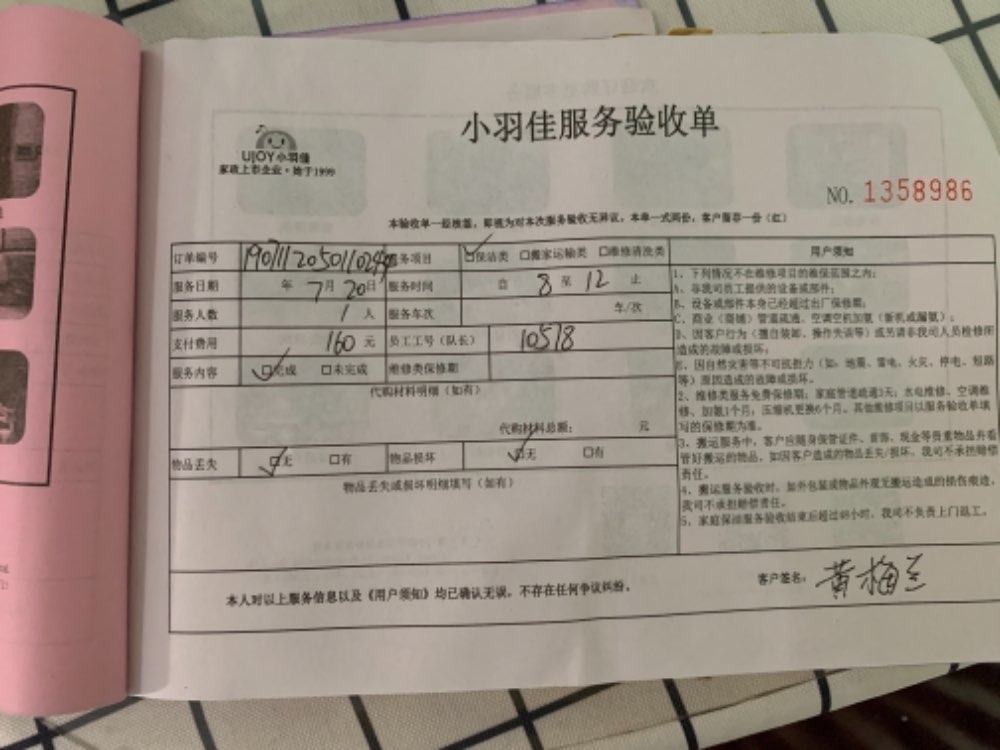 小羽佳服务验收单
UJOY小羽佳
家政上市企业·始于1999
NO. 1358986
本验收单一经核签，即视为对本次服务验收无异议，本单一式两份，客户留存一份（红）
订单编号 服务项目 保洁类 □搬家运输类 □维修清洗类 用户须知
服务日期 年 7月 20日 服务时间 自 8 至 12 止
服务人数 1 人 服务车次 车/次
支付费用 160 元 员工工号（队长） 10578
服务内容 ☑完成 □未完成 维修类保修期
代购材料明细（如有）
代购材料总额： 元
物品丢失 ☑无 □有 物品损坏 ☑无 □有
物品丢失或损坏明细填写（如有）
1、下列情况不在维修项目的维保范围之内：
A、非我司员工提供的设备或部件；
B、设备或部件本身已经超过出厂保修期；
C、商业（商铺）管道疏通、空调空机加氟（新机或漏氟）；
D、因客户行为（擅自装卸、操作失误等）或另请非我司人员检修所
造成的故障或损坏；
E、因自然灾害等不可抗拒力（如：地震、雷电、火灾、停电、短路
等）原因造成的故障或损坏。
2、维修类服务免费保修期：家庭管道疏通3天；水电维修、空调维
修、加氟1个月；压缩机更换6个月。其他维修项目以服务验收单填
写的保修期为准。
3、搬运服务中，客户应随身保管证件、首饰、现金等贵重物品并看
管好搬运的物品，如因客户造成的物品丢失/损坏，我司不承担赔偿
责任。
4、搬运服务验收时，如外包装或物品外观无搬运造成的损伤痕迹，
我司不承担赔偿责任。
5、家庭保洁服务验收结束后超过48小时，我司不负责上门返工。
本人对以上服务信息以及《用户须知》均已确认无误，不存在任何争议纠纷。
客户签名： 黄梅兰